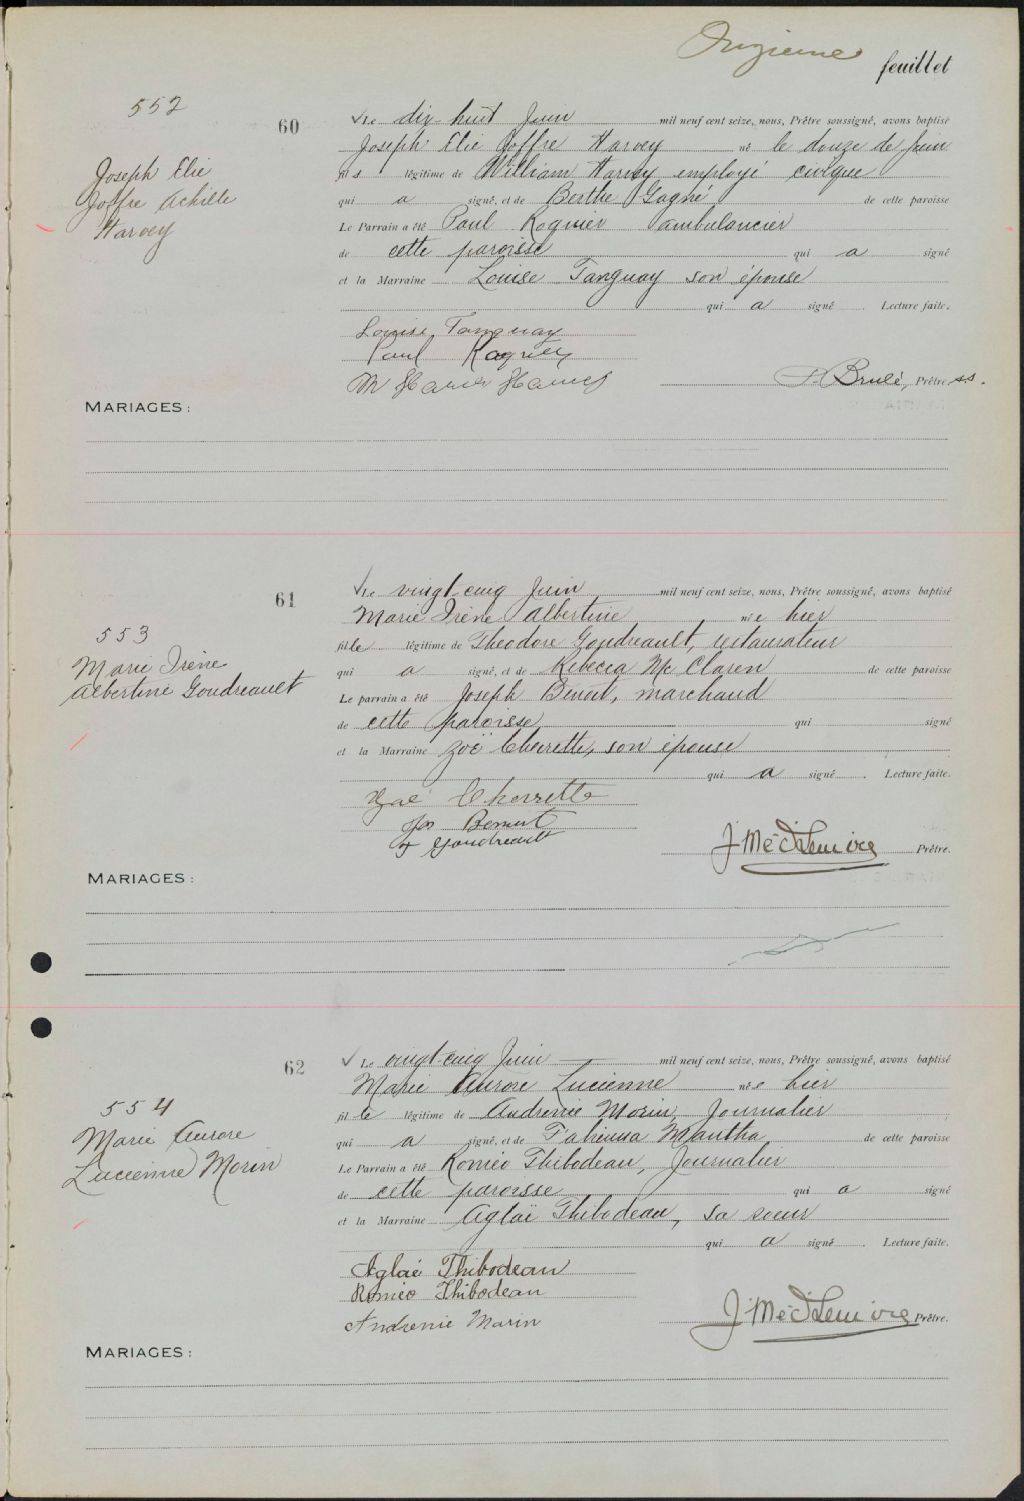 Onzieme feuillet
552
60
Joseph Elie
Joffre Achille
Harvey
Le dix-huit Juin mil neuf cent seize, nous, Prêtre soussigné, avons baptisé
Joseph Elie Joffre Harvey né le douze de Juin
fils légitime de William Harvey employé civique
qui a signé, et de Berthe Gagné de cette paroisse
Le Parrain a été Paul Ragnier ambulancier
de cette paroisse qui a signé
et la Marraine Louise Tanguay son épouse
qui a signé Lecture faite.
Louise Tanguay
Paul
P. Brulé, Prêtre s.s.
MARIAGES:
61
553
Marie Irène
Albertine Goudreault
Le vingt-cinq Juin mil neuf cent seize, nous, Prêtre soussigné, avons baptisé
Marie Irène Albertine née hier
fille légitime de Theodore Goudreault, restaurateur
qui a signé, et de Rebecca Mc Claren de cette paroisse
Le parrain a été Joseph Benoit, marchand
de cette paroisse qui signé
et la Marraine Zoë Cherrette, son épouse
qui a signé Lecture faite.
Zoé Cherrette
Jos Benoit
T Goudreault
Prêtre.
MARIAGES:
62
554
Marie Aurore
Lucienne Morin
Le vingt-cinq Juin mil neuf cent seize, nous, Prêtre soussigné, avons baptisé
Marie Aurore Lucienne née hier
fille légitime de Audrenie Morin, Journalier
qui a signé, et de Fabienna Mantha de cette paroisse
Le Parrain a été Roméo Thibodeau, Journalier
de cette paroisse qui a signé
et la Marraine Aglaï Thibodeau, sa soeur
qui a signé Lecture faite.
Aglaé Thibodeau
Roméo Thibodeau
Andrenie Morin
Prêtre.
MARIAGES: